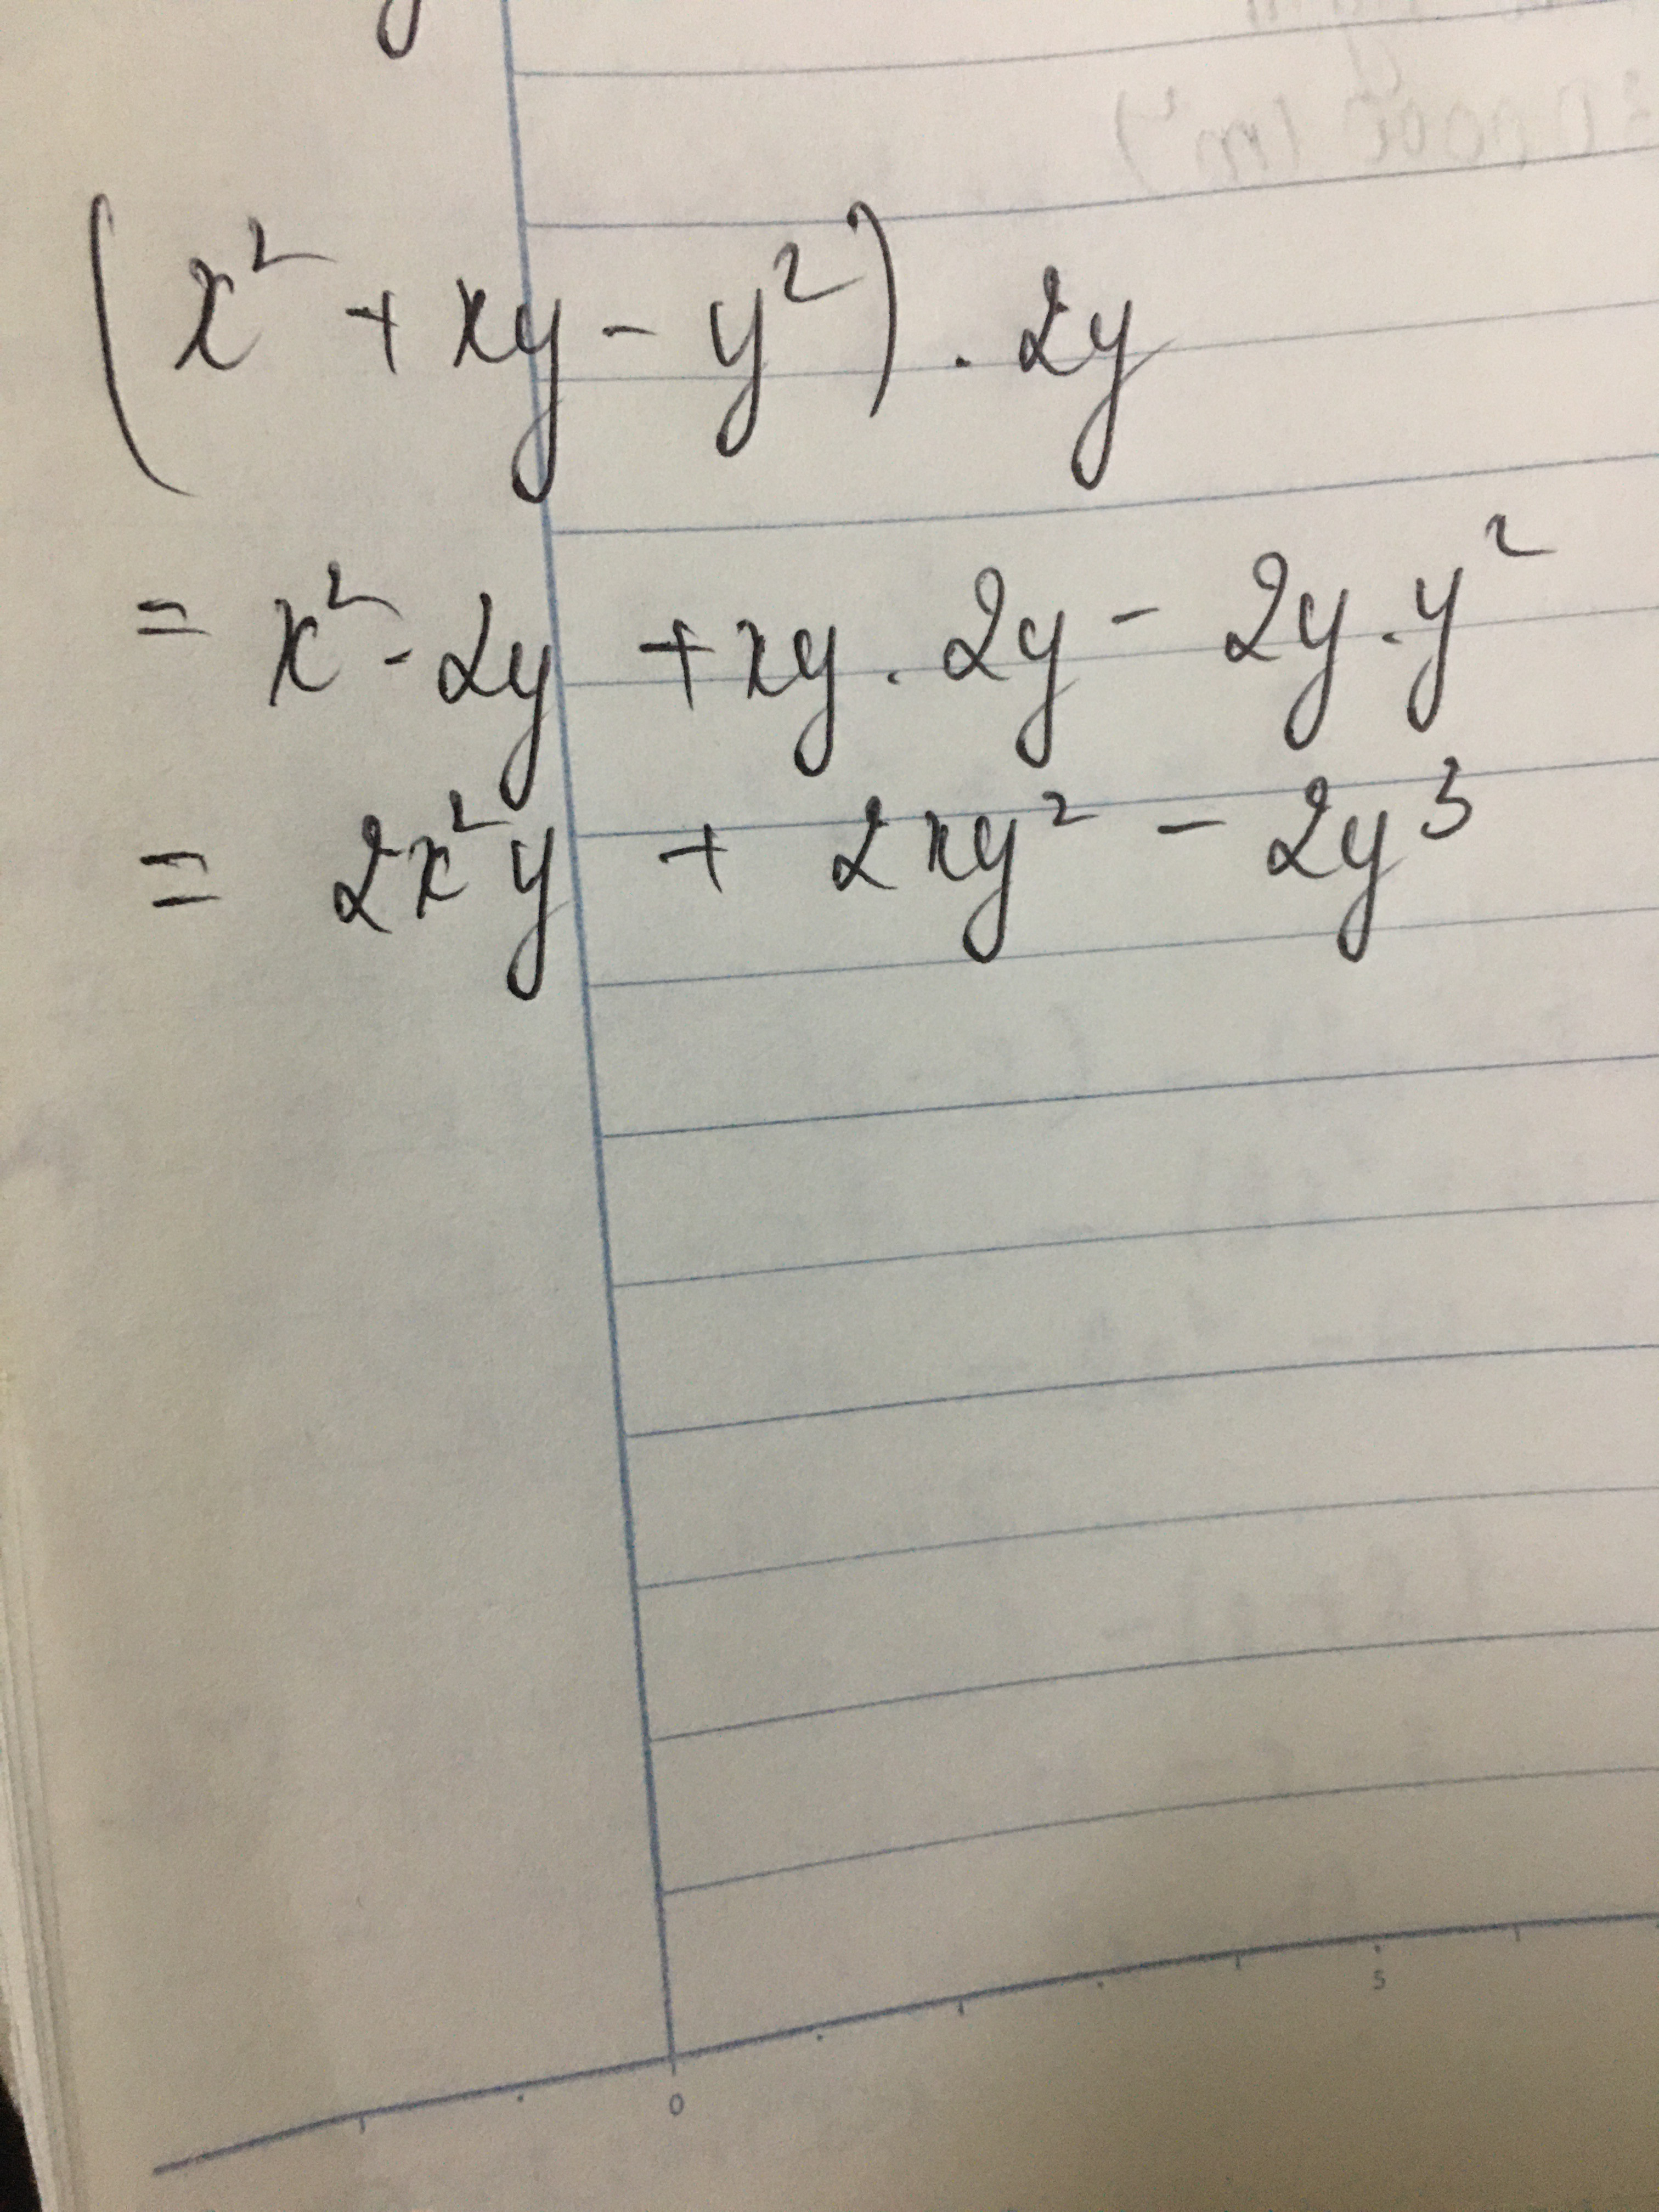 (x² + xy - y²) . 2y
= x² - 2y + xy . 2y - 2y . y²
= 2x²y + 2xy² - 2y³
5
0